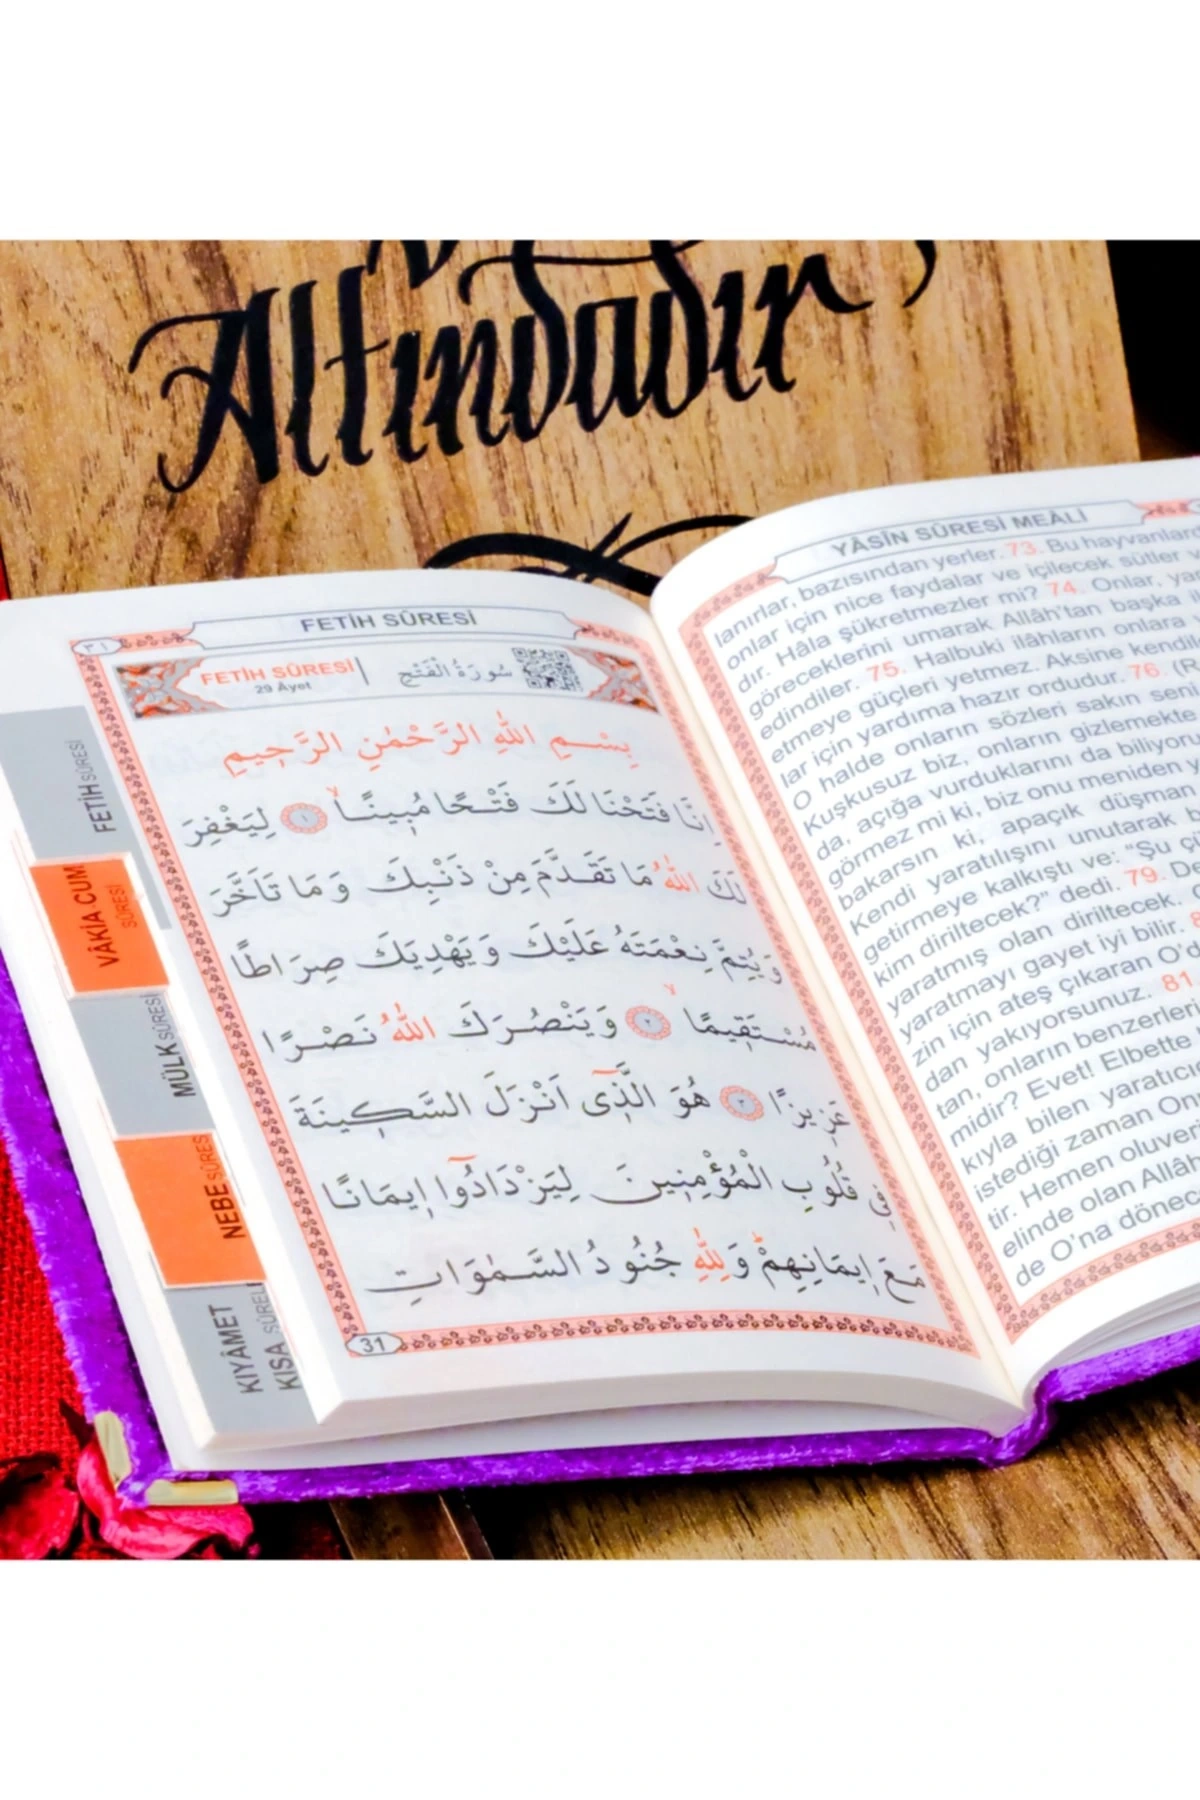 Altındadır
FETİH SÛRESİ
٣١
FETİH SÛRESİ
29 Âyet
سُورَةُ الْفَتْحِ
بِسْمِ اللّٰهِ الرَّحْمٰنِ الرَّحٖيمِ
اِنَّا فَتَحْنَا لَكَ فَتْحًا مُبٖينًاۙ ﴿١﴾ لِيَغْفِرَ
لَكَ اللّٰهُ مَا تَقَدَّمَ مِنْ ذَنْبِكَ وَمَا تَاَخَّرَ
وَيُتِمَّ نِعْمَتَهُ عَلَيْكَ وَيَهْدِيَكَ صِرَاطًا
مُسْتَقٖيمًاۙ ﴿٢﴾ وَيَنْصُرَكَ اللّٰهُ نَصْرًا
عَزٖيزًا ﴿٣﴾ هُوَ الَّذٖٓى اَنْزَلَ السَّكٖينَةَ
فٖى قُلُوبِ الْمُؤْمِنٖينَ لِيَزْدَادُٓوا اٖيمَانًا
مَعَ اٖيمَانِهِمْؕ وَلِلّٰهِ جُنُودُ السَّمٰوَاتِ
31
FETİH SÛRESİ
VÂKİA CUM
SÛRESİ
MÜLK SÛRESİ
NEBE SÛRES
KIYÂMET
KISA SÛREL
YÂSİN SÛRESİ MEÂLİ
lanırlar, bazısından yerler. 73. Bu hayvanlard
onlar için nice faydalar ve içilecek sütler
dır. Hâla şükretmezler mi? 74. Onlar, ya
göreceklerini umarak Allâh'tan başka
edindiler. 75. Halbuki ilâhların onlara
etmeye güçleri yetmez. Aksine kendi
lar için yardıma hazır ordudur. 76. (R
O halde onların sözleri sakın seni
Kuşkusuz biz, onların gizlemekte
da, açığa vurduklarını da biliyoru
görmez mi ki, biz onu meniden y
bakarsın ki, apaçık düşman
Kendi yaratılışını unutarak b
getirmeye kalkıştı ve: "Şu çü
kim diriltecek?" dedi. 79. De
yaratmış olan diriltecek.
yaratmayı gayet iyi bilir.
zin için ateş çıkaran O'd
dan yakıyorsunuz. 81
tan, onların benzerler
midir? Evet! Elbette
kıyla bilen yaratıcı
istediği zaman On
tir. Hemen oluveri
elinde olan Allâh
de O'na dönec